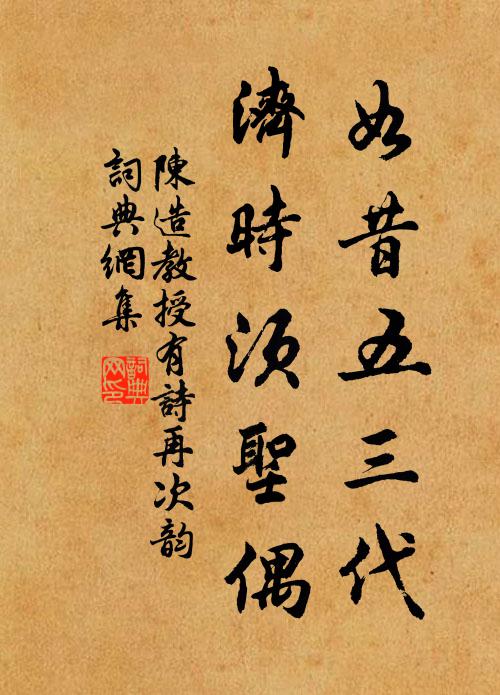 如昔五三代
濟時須聖偶
陳造教授有詩再次韵
詞典網集
詞典
网印